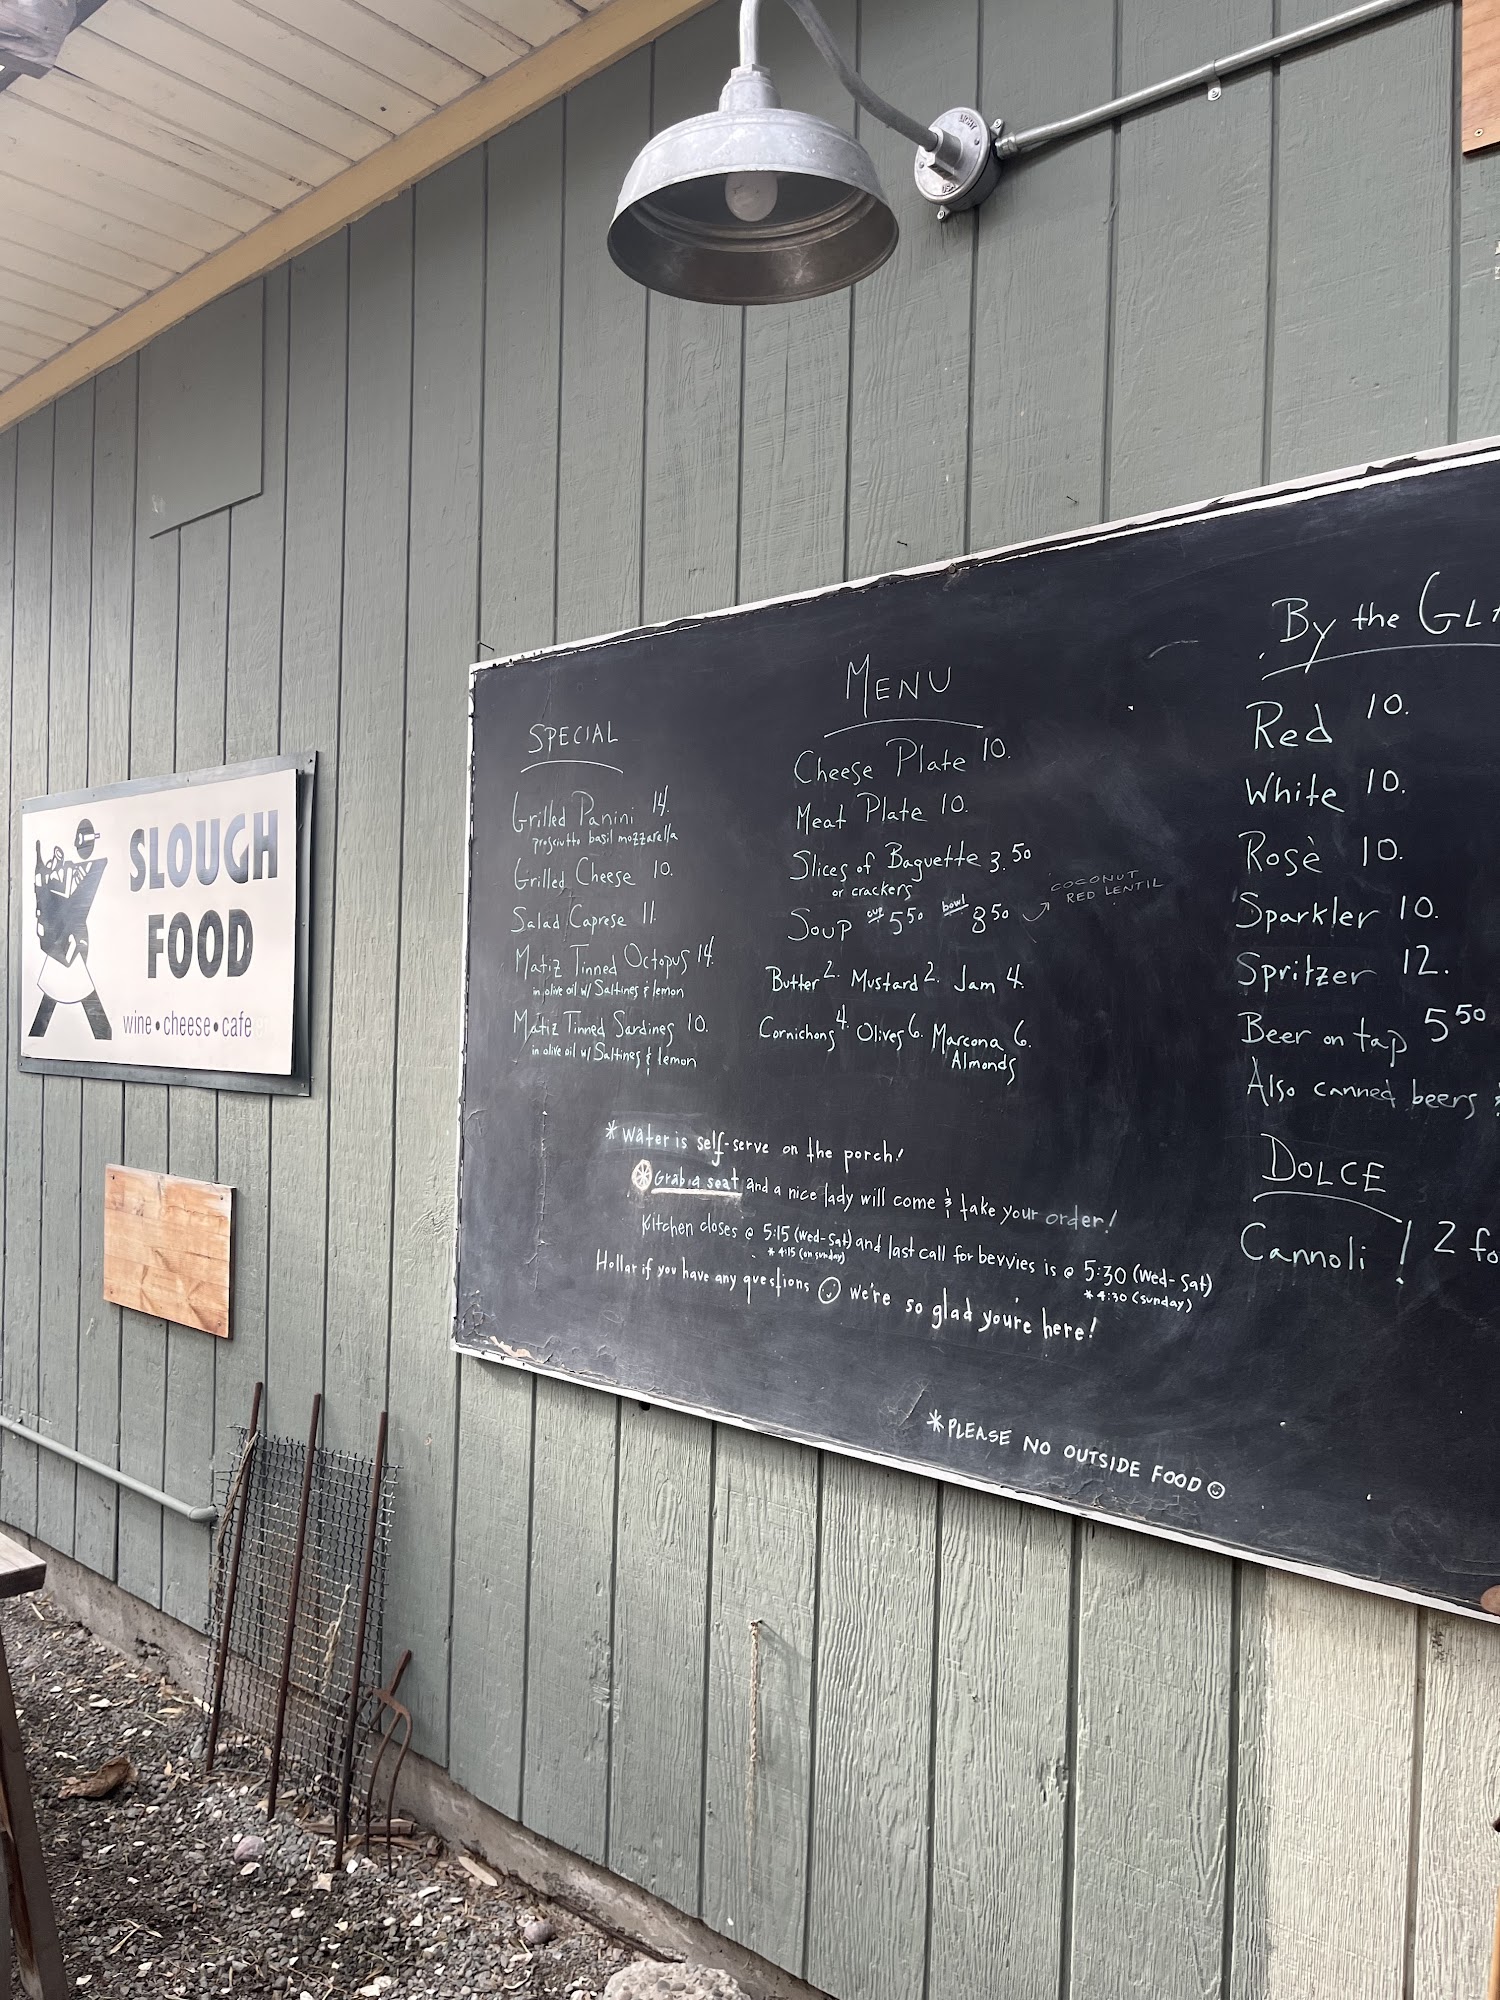 SLOUGH
FOOD
wine • cheese • cafe
SPECIAL
Grilled Panini 14.
prosciutto basil mozzarella
Grilled Cheese 10.
Salad Caprese 11.
Matiz Tinned Octopus 14.
in olive oil w/ Saltines & lemon
Matiz Tinned Sardines 10.
in olive oil w/ Saltines & lemon
MENU
Cheese Plate 10.
Meat Plate 10.
Slices of Baguette 3.50
or crackers
Soup cup 5.50 bowl 8.50
COCONUT
RED LENTIL
Butter 2. Mustard 2. Jam 4.
Cornichons 4. Olives 6. Marcona 6.
Almonds
* Water is self-serve on the porch!
* Grab a seat and a nice lady will come & take your order!
Kitchen closes @ 5:15 (Wed-Sat) and last call for bevvies is @ 5:30 (Wed-Sat)
* 4:15 (on sunday) * 4:30 (sunday)
Hollar if you have any questions ☺ we're so glad you're here!
* PLEASE NO OUTSIDE FOOD ☺
By the GLA
Red 10.
White 10.
Rosè 10.
Sparkler 10.
Spritzer 12.
Beer on tap 5.50
Also canned beers
DOLCE
Cannoli! 2 fo